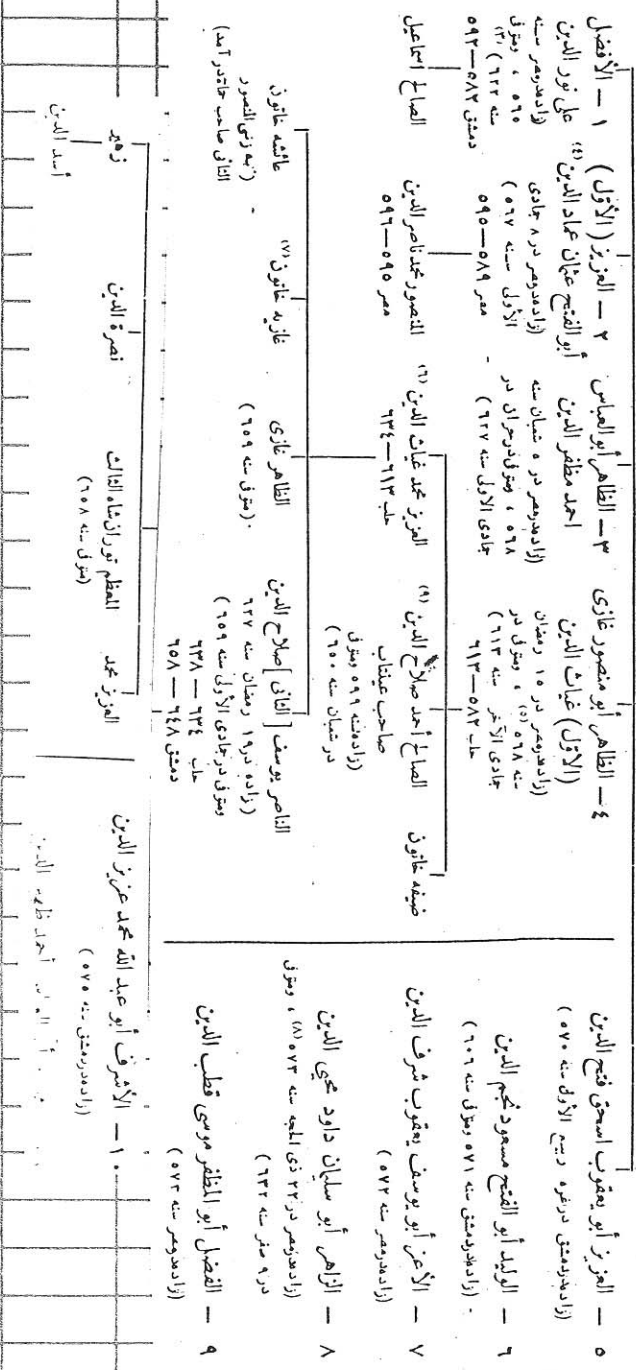 ١ — الأفضل
علي نور الدين
(زاده درمصر سنه
٥٦٥ ، ومتوفى
سنه ٦٢٢) (٣)
دمشق ٥٨٢—٥٩٢
٢ — العزيز (الأوّل)
أبو الفتح عثمان عماد الدين (٤)
(زاده درمصر در ٨ جمادى
الأولى سنه ٥٦٧)
مصر ٥٨٩—٥٩٥
٣ — الظاهر أبو العباس
احمد مظفر الدين
(زاده درمصر در ٥ شعبان سنه
٥٦٨ ، ومتوفى درحران در
جمادى الاولى سنه ٦٢٧)
٤ — الظاهر أبو منصور غازى
(الأوّل) غياث الدين
(زاده درمصر در ١٥ رمضان
سنه ٥٦٨ (٥) ، ومتوفى در
جمادى الآخر سنه ٦١٣)
حلب ٥٨٢—٦١٣
الصالح اسماعيل
المنصور محمد ناصر الدين
مصر ٥٩٥—٥٩٦
العزيز محمد غياث الدين (٦)
حلب ٦١٣—٦٣٤
الصالح أحمد صلاح الدين (٩)
صاحب عينتاب
(زاده سنه ٥٩٩ ومتوفى
در شعبان سنه ٦٥٠)
ضيفه خاتون
عائشه خاتون
(به زنى المنصور
الثانى صاحب حماة در آمد)
غازيه خاتون (٧)
الظاهر غازى
(متوفى سنه ٦٥٩)
الناصر يوسف [الثانى] صلاح الدين
(زاده در ١٩ رمضان سنه ٦٢٧
ومتوفى در جمادى الأولى سنه ٦٥٩)
حلب ٦٣٤ — ٦٣٨
دمشق ٦٤٨ — ٦٥٨
زهير
أسد الدين
نصرة الدين
المعظم توران شاه الثالث
(متوفى سنه ٦٥٨)
العزيز محمد
٥ — العزيز أبو يعقوب اسحق فتح الدين
(زاده دردمشق درغره ربيع الأولى سنه ٥٧٠)
٦ — الوليد أبو الفتح مسعود نجم الدين
(زاده دردمشق سنه ٥٧١ ومتوفى سنه ٦٠٦)
٧ — الأعز أبو يوسف يعقوب شرف الدين
(زاده درمصر سنه ٥٧٢)
٨ — الزاهر أبو سليمان داود محيى الدين
(زاده درمصر در ٢٢ ذى الحجه سنه ٥٧٣ (٨) ، ومتوفى
در ٩ صفر سنه ٦٣٢)
٩ — الفضل أبو المظفر موسى قطب الدين
(زاده درمصر سنه ٥٧٣)
١٠ — الأشرف أبو عبد الله محمد عزيز الدين
(زاده دردمشق سنه ٥٧٥)